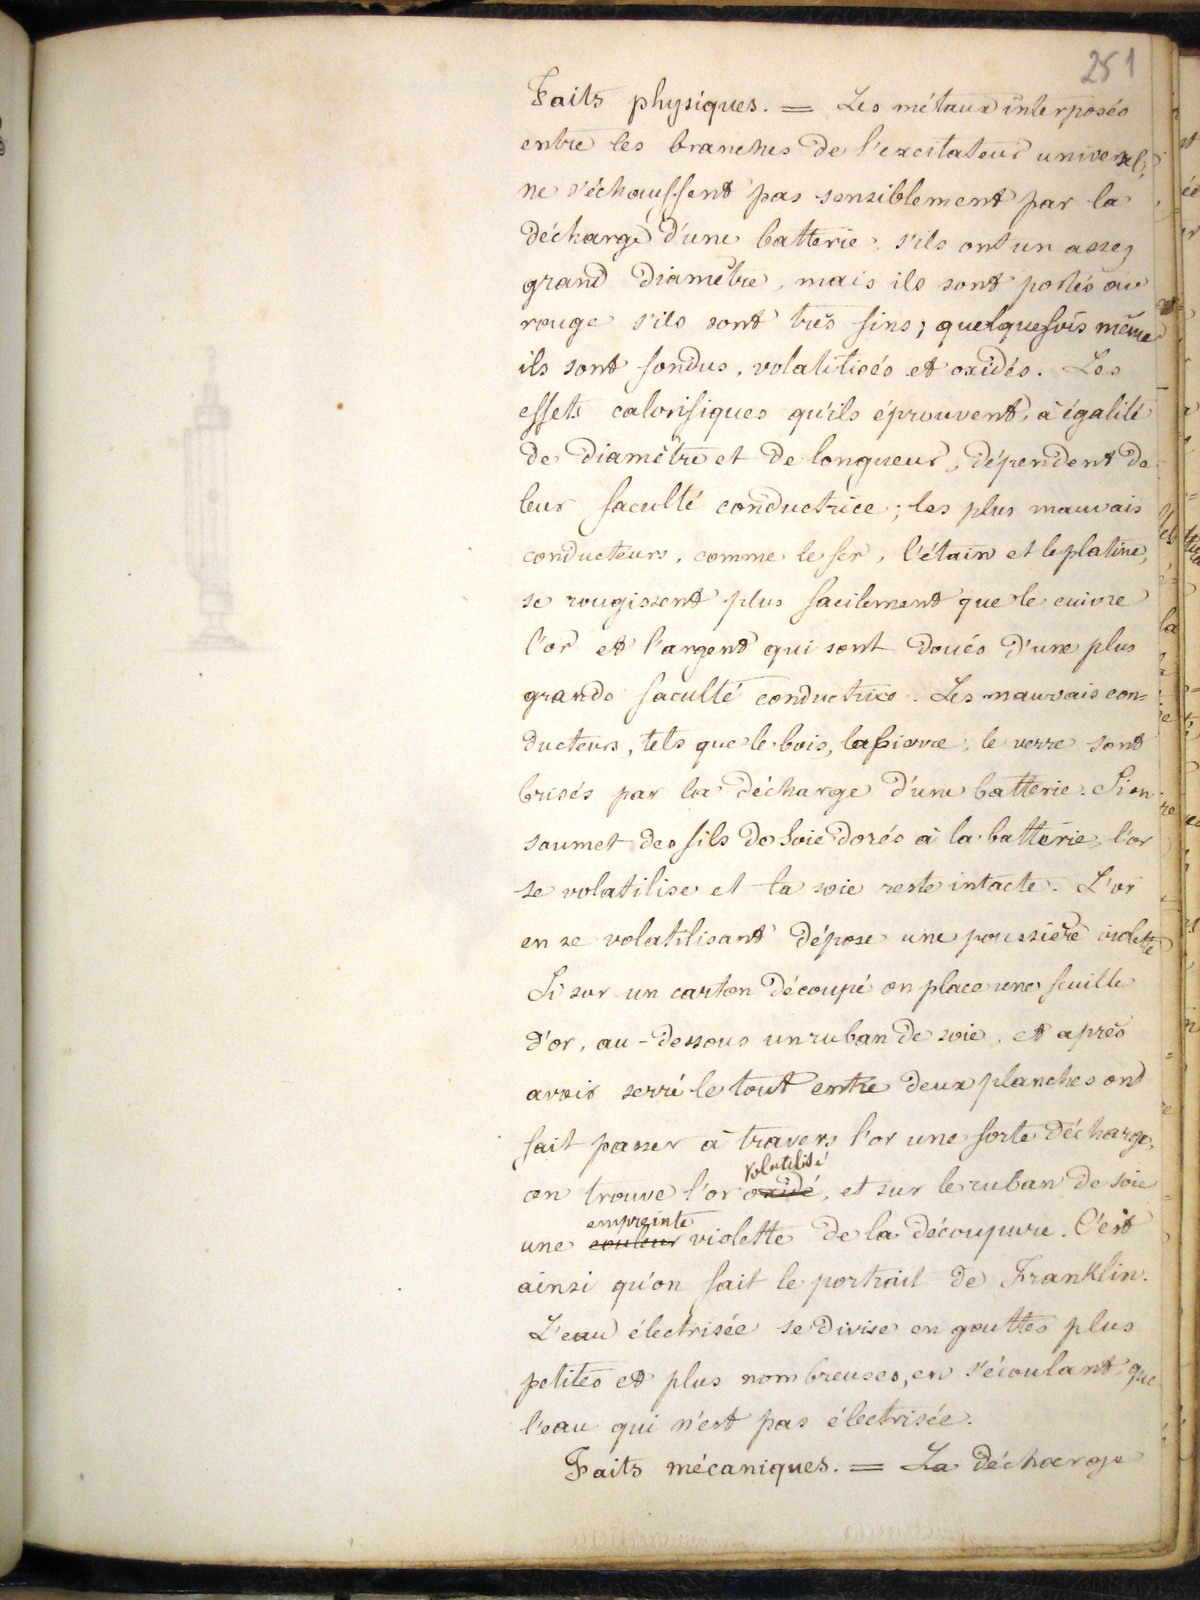 251
Faits physiques. = Les métaux interposés
entre les branches de l'excitateur universel,
ne s'échauffent pas sensiblement par la
décharge d'une batterie, s'ils ont un assez
grand diamètre, mais ils sont portés au
rouge s'ils sont très fins; quelquefois même
ils sont fondus, volatilisés et oxidés. Les
effets calorifiques qu'ils éprouvent, à égalité
de diamètre et de longueur, dépendent de
leur faculté conductrice; les plus mauvais
conducteurs, comme le fer, l'étain et le platine,
se rougissent plus facilement que le cuivre
l'or et l'argent qui sont doués d'une plus
grande faculté conductrice. Les mauvais con=
ducteurs, tels que le bois, la pierre, le verre sont
brisés par la décharge d'une batterie. Si on
soumet des fils de soie dorés à la batterie, l'or
se volatilise et la soie reste intacte. L'or
en se volatilisant dépose une poussière violette
Si sur un carton découpé on place une feuille
d'or, au-dessous un ruban de soie, et après
avoir serré le tout entre deux planches ont
fait passer à travers l'or une forte décharge,
volatilisé
on trouve l'or oxidé, et sur le ruban de soie
empreinte
une couleur violette de la découpure. C'est
ainsi qu'on fait le portrait de Franklin.
L'eau électrisée se divise en gouttes plus
petites et plus nombreuses, en s'écoulant, que
l'eau qui n'est pas électrisée.
Faits mécaniques. = La décharge